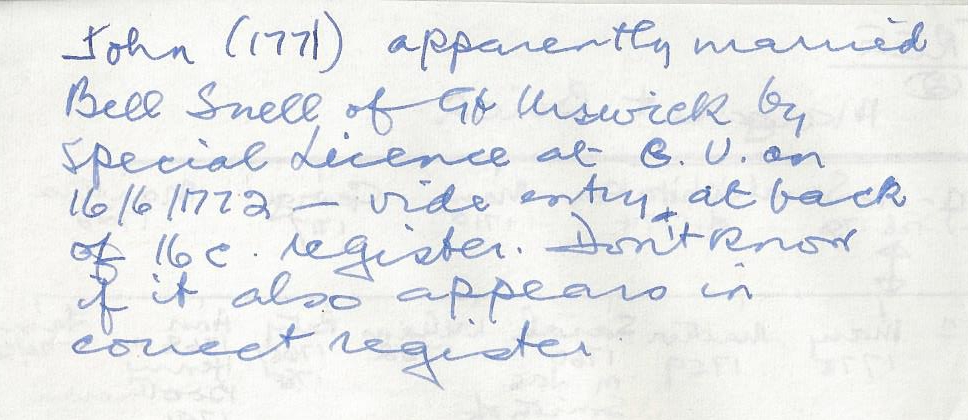 John (1771) apparently married
Bell Snell of Gt Urswick by
Special Licence at G. U. on
16/6/1772 — vide entry at back
of 16c. register. Don't know
if it also appears in
correct register